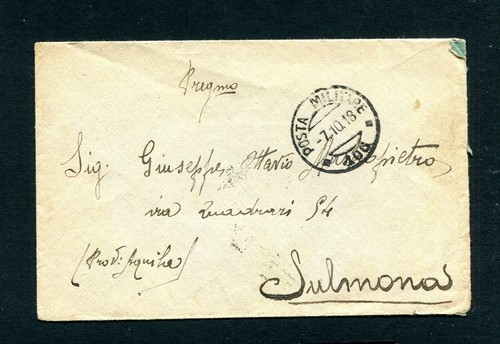 Pregmo
POSTA MILITARE
-7.10.18
Sig. Giuseppe Ottavio
via Quadrari 54
(Prov: Aquila)
Sulmona